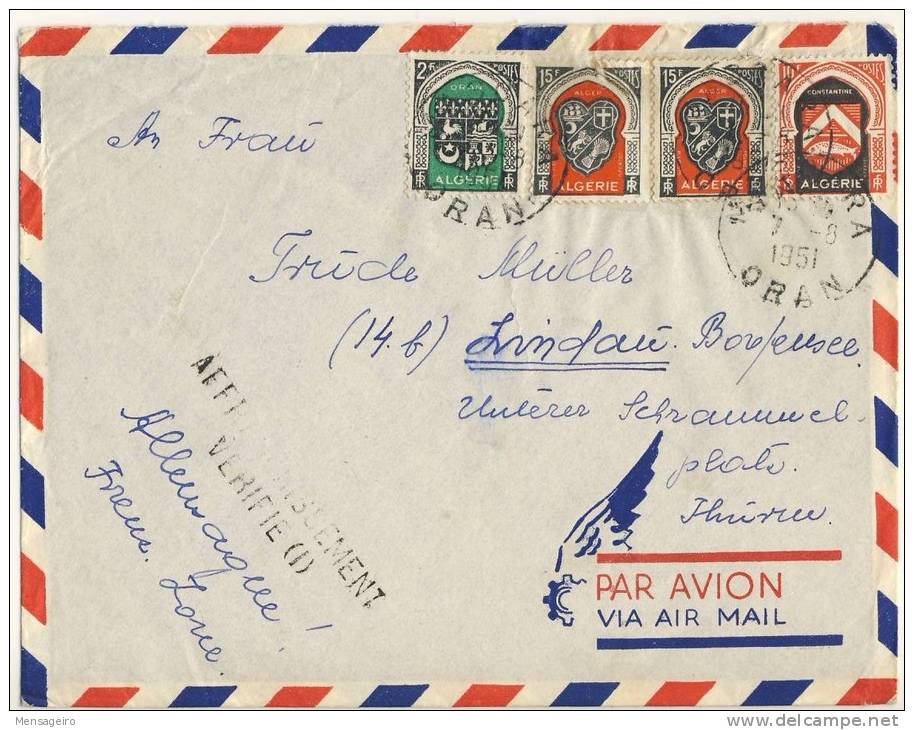 2F POSTES
ORAN
ALGERIE
RF RF
15F POSTES
ALGER
ALGERIE
RF
15F POSTES
ALGER
ALGERIE
RF RF
10F POSTES
CONSTANTINE
ALGERIE
RF RF
ORAN
7 -8
1951
ORAN
An Frau
Trude Müller
(14.b) Lindau. Bodensee
Unterer Schrammel-
platz.
AFFRANCHISSEMENT
VERIFIE (1)
Allemagne!
Franz. Zone.
PAR AVION
VIA AIR MAIL
© Mensageiro
delcampe.net